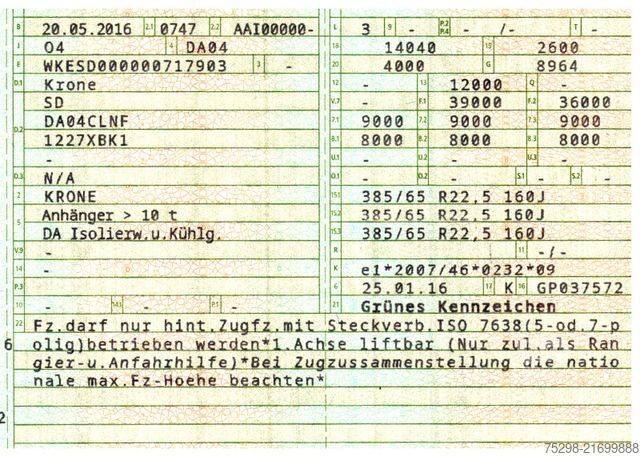 B 20.05.2016 2.1 0747 2.2 AAI00000-
J 04 4 DA04
E WKESD000000717903 3 -
D.1 Krone
SD
D.2 DA04CLNF
1227XBK1
-
D.3 N/A
2 KRONE
5 Anhänger > 10 t
DA Isolierw.u.Kühlg.
V.9 -
14 -
P.3
10 - 14.1 - P.1 -
L 3 9 - P.2 P.4 - /- T -
18 14040 19 2600
20 4000 G 8964
12 - 13 12000 Q -
V.7 - F.1 39000 F.2 36000
7.1 9000 7.2 9000 7.3 9000
8.1 8000 8.2 8000 8.3 8000
U.1 - U.2 - U.3 -
O.1 - O.2 - S.1 - S.2 -
15.1 385/65 R22,5 160J
15.2 385/65 R22,5 160J
15.3 385/65 R22,5 160J
R - 11 -/-
K e1*2007/46*0232*09
6 25.01.16 17 K 16 GP037572
21 Grünes Kennzeichen
22 Fz.darf nur hint.Zugfz.mit Steckverb.ISO 7638(5-od.7-p
olig)betrieben werden*1.Achse liftbar (Nur zul.als Ran
gier-u.Anfahrhilfe)*Bei Zugzusammenstellung die natio
nale max.Fz-Hoehe beachten*
6
2
75298-21699888